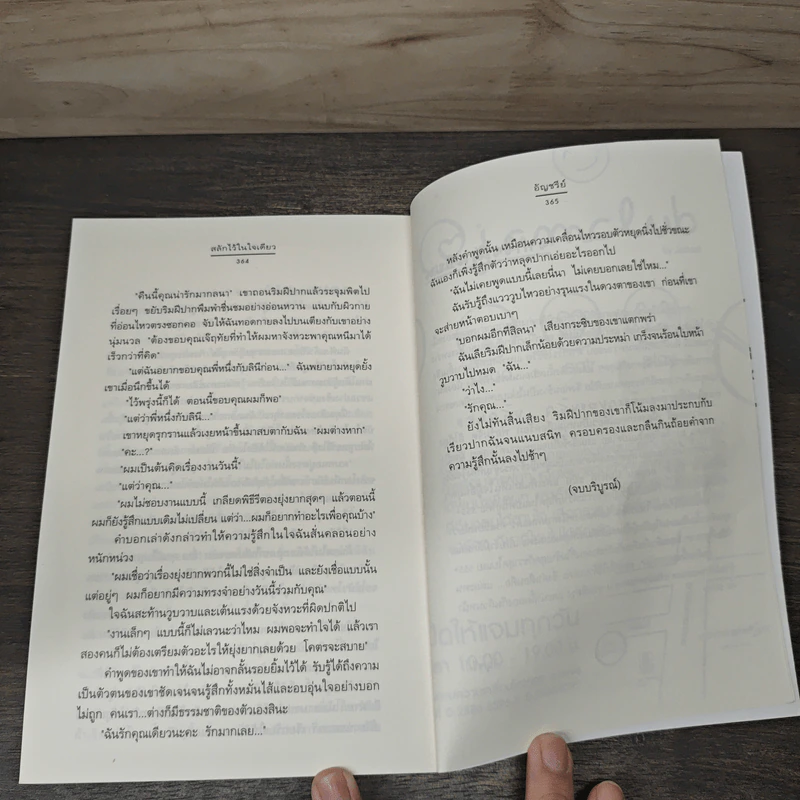 สลักไว้ในใจเดียว
364
"คืนนี้คุณน่ารักมากลนา" เขาถอนริมฝีปากแล้วระจุมพิตไป
เรื่อยๆ ขยับริมฝีปากพึมพำชื่นชมอย่างอ่อนหวาน แนบกับผิวกาย
ที่อ่อนไหวตรงซอกคอ จับให้ฉันทอดกายลงไปบนเตียงกับเขาอย่าง
นุ่มนวล "ต้องขอบคุณเจ๊ฤทัยที่ทำให้ผมหาจังหวะพาคุณหนีมาได้
เร็วกว่าที่คิด"
"แต่ฉันอยากขอบคุณพี่หนึ่งกับลินีก่อน..." ฉันพยายามหยุดยั้ง
เขาเมื่อนึกขึ้นได้
"ไว้พรุ่งนี้ก็ได้ ตอนนี้ขอบคุณผมก็พอ"
"แต่ว่าพี่หนึ่งกับลินี..."
เขาหยุดรุกรานแล้วเงยหน้าขึ้นมาสบตากับฉัน "ผมต่างหาก"
"คะ...?"
"ผมเป็นต้นคิดเรื่องงานวันนี้"
"แต่ว่าคุณ..."
"ผมไม่ชอบงานแบบนี้ เกลียดพิธีรีตองยุ่งยากสุดๆ แล้วตอนนี้
ผมก็ยังรู้สึกแบบเดิมไม่เปลี่ยน แต่ว่า...ผมก็อยากทำอะไรเพื่อคุณบ้าง"
คำบอกเล่าดังกล่าวทำให้ความรู้สึกในใจฉันสั่นคลอนอย่าง
หนักหน่วง
"ผมเชื่อว่าเรื่องยุ่งยากพวกนี้ไม่ใช่สิ่งจำเป็น และยังเชื่อแบบนั้น
แต่อยู่ๆ ผมก็อยากมีความทรงจำอย่างวันนี้ร่วมกับคุณ"
ใจฉันสะท้านวูบวาบและเต้นแรงด้วยจังหวะที่ผิดปกติไป
"งานเล็กๆ แบบนี้ก็ไม่เลวนะว่าไหม ผมพอจะทำใจได้ แล้วเรา
สองคนก็ไม่ต้องเตรียมตัวอะไรให้ยุ่งยากเลยด้วย โคตรจะสบาย"
คำพูดของเขาทำให้ฉันไม่อาจกลั้นรอยยิ้มไว้ได้ รับรู้ได้ถึงความ
เป็นตัวตนของเขาชัดเจนจนรู้สึกทั้งหมั่นไส้และอบอุ่นใจอย่างบอก
ไม่ถูก คนเรา...ต่างก็มีธรรมชาติของตัวเองสินะ
"ฉันรักคุณเดียวนะคะ รักมากเลย..."
อัญชรีย์
365
หลังคำพูดนั้น เหมือนความเคลื่อนไหวรอบตัวหยุดนิ่งไปชั่วขณะ
ฉันเองก็เพิ่งรู้สึกตัวว่าหลุดปากเอ่ยอะไรออกไป
"ฉันไม่เคยพูดแบบนี้เลยนี่นา ไม่เคยบอกเลยใช่ไหม..."
ฉันรับรู้ถึงแวววูบไหวอย่างรุนแรงในดวงตาของเขา ก่อนที่เขา
จะส่ายหน้าตอบเบาๆ
"บอกผมอีกทีสิลนา" เสียงกระซิบของเขาแตกพร่า
ฉันเลียริมฝีปากเล็กน้อยด้วยความประหม่า เกร็งจนร้อนใบหน้า
วูบวาบไปหมด "ฉัน..."
"ว่าไง..."
"รักคุณ..."
ยังไม่ทันสิ้นเสียง ริมฝีปากของเขาก็โน้มลงมาประกบกับ
เรียวปากฉันจนแนบสนิท ครอบครองและกลืนกินถ้อยคำจาก
ความรู้สึกนั้นลงไปช้าๆ
(จบบริบูรณ์)